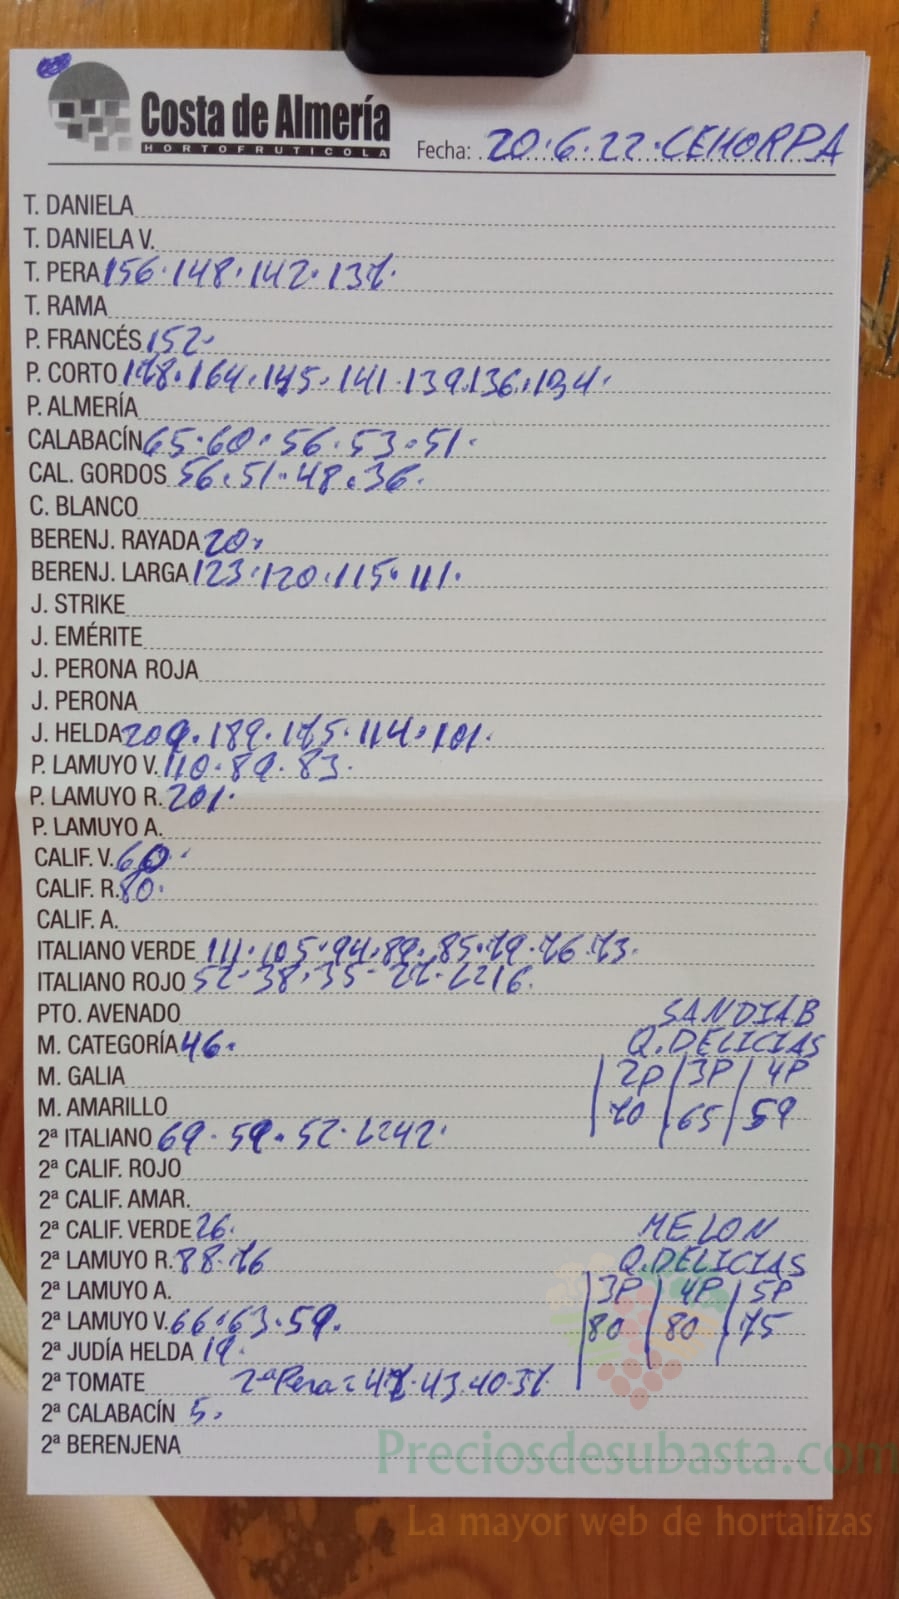 Costa de Almería
HORTOFRUTICOLA
Fecha: 20.6.22.CEHORPA
T. DANIELA
T. DANIELA V.
T. PERA 156.148.142.137.
T. RAMA
P. FRANCÉS 152.
P. CORTO 178.164.145.141.139.136.134.
P. ALMERÍA
CALABACÍN 65.60.56.53.51.
CAL. GORDOS 56.51.48.36.
C. BLANCO
BERENJ. RAYADA 20.
BERENJ. LARGA 123.120.115.111.
J. STRIKE
J. EMÉRITE
J. PERONA ROJA
J. PERONA
J. HELDA 209.189.175.114.101.
P. LAMUYO V. 110.89.83.
P. LAMUYO R. 201.
P. LAMUYO A.
CALIF. V. 60.
CALIF. R. 80.
CALIF. A.
ITALIANO VERDE 111.105.94.89.85.79.76.73.
ITALIANO ROJO 52.38.35.27.L=16.
PTO. AVENADO SANDIA B
M. CATEGORÍA 46. Q.DELICIAS
M. GALIA 2P 3P 4P
M. AMARILLO 70 65 59
2ª ITALIANO 69.59.52.L=42.
2ª CALIF. ROJO
2ª CALIF. AMAR.
2ª CALIF. VERDE 26. MELON
2ª LAMUYO R. 88.76 Q.DELICIAS
2ª LAMUYO A. 3P 4P 5P
2ª LAMUYO V. 66.63.59. 80 80 75
2ª JUDÍA HELDA 19.
2ª TOMATE 2ª Pera = 47.43.40.37.
2ª CALABACÍN 5.
2ª BERENJENA
Preciosdesubasta.com
La mayor web de hortalizas